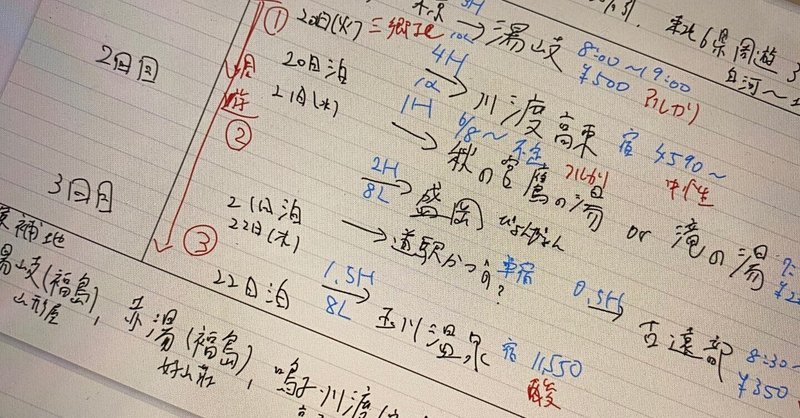 東北6県周遊
白河〜
① 20日(火) 三郷北 → 湯岐 8:00〜19:00
¥500 アルカリ
2回目
20日泊 4H → 川渡高東 宿 4590〜
中性
21日(水) 1H → 秋の宮鷹の湯 or 滝の湯
6/8〜 アルカリ
②
2H 8L → 盛岡 ぴょんぴょん
3回目
21日泊 → 道の駅かづの? 車宿
22日(木) 0.5H → 古遠部 8:30〜
¥350
③
22日泊 1.5H 8L → 玉川温泉 宿 11,550
酸
候補地
湯岐(福島), 赤湯(福島), 鳴子川渡
山形屋 好山荘